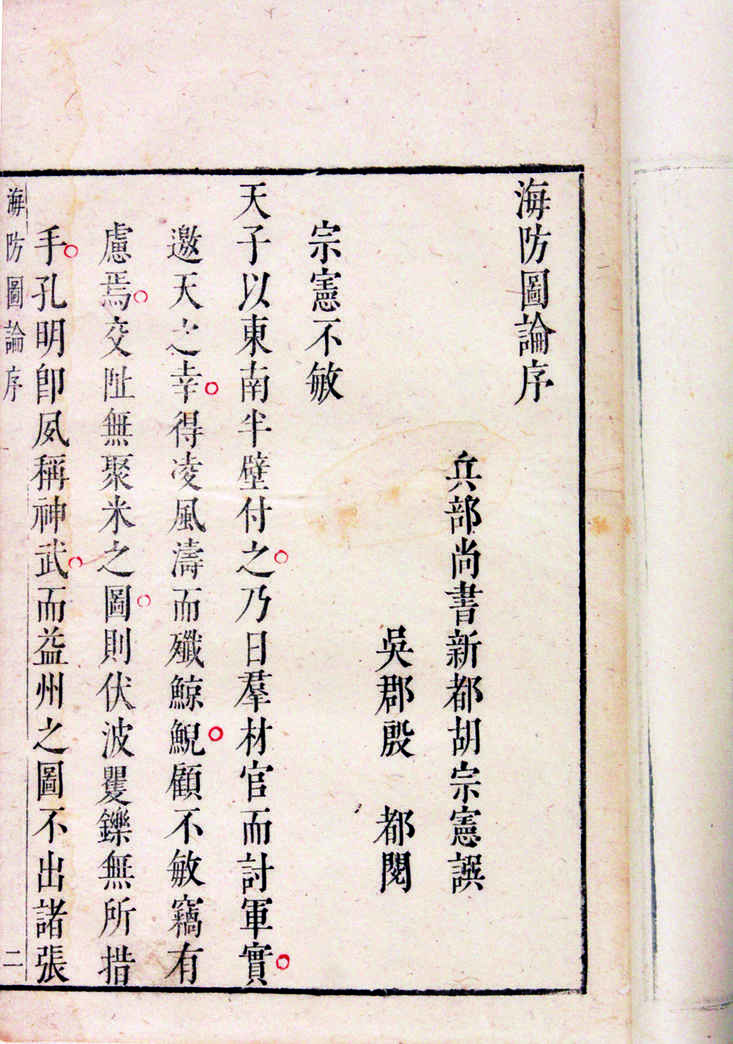 海防圖論序
兵部尚書新都胡宗憲譔
吳郡殷 都閱
宗憲不敏
天子以東南半壁付之乃日羣材官而討軍實
邀天之幸得凌風濤而殲鯨鯢顧不敏竊有
慮焉交阯無聚米之圖則伏波矍鑠無所措
手孔明卽夙稱神武而益州之圖不出諸張
海防圖論序
二